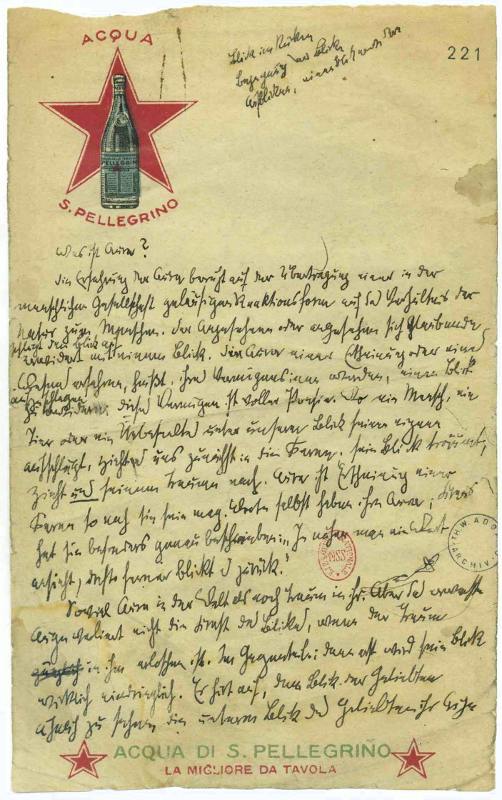 ACQUA
S. PELLEGRINO
221
Blick im Rücken
Begegnung der Blicke
Aufblicken,
Was ist Aura?
Die Erfahrung der Aura beruht auf der Übertragung einer in der
menschlichen Gesellschaft geläufigen Reaktionsform auf das Verhältnis der
Natur zum Menschen. Der Angesehene oder angesehen sich Glaubende
schlägt den Blick auf
erwidert mit einem Blick. Die Aura einer Erscheinung oder eines
Wesens erfahren, heißt, ihres Vermögens inne werden, einen Blick
aufzuschlagen
zu erwidern. Dieses Vermögen ist voller Poesie. Wo ein Mensch, ein
Tier oder ein Unbeseeltes unter unserm Blick seinen eignen
aufschlägt, zieht es uns zunächst in die Ferne. Sein Blick träumt,
zieht uns seinem Traume nach. Aura ist Erscheinung einer
Ferne so nah sie sein mag. Worte selbst haben ihre Aura;
hat sie besonders genau beschrieben: Je näher man ein Wort
ansieht, desto ferner blickt es zurück.
Soviel Aura in der Welt als noch Traum in ihr. Aber das erwachte
Auge verliert nicht die Kunst des Blicks, wenn der Traum
in ihm erloschen ist. Im Gegenteil: dann erst wird sein Blick
wirklich eindringlich. Er hört auf, dem Blick der Geliebten
ähnlich zu sehen, die unterm Blick des Geliebten ihr Auge
ACQUA DI S. PELLEGRINO
LA MIGLIORE DA TAVOLA